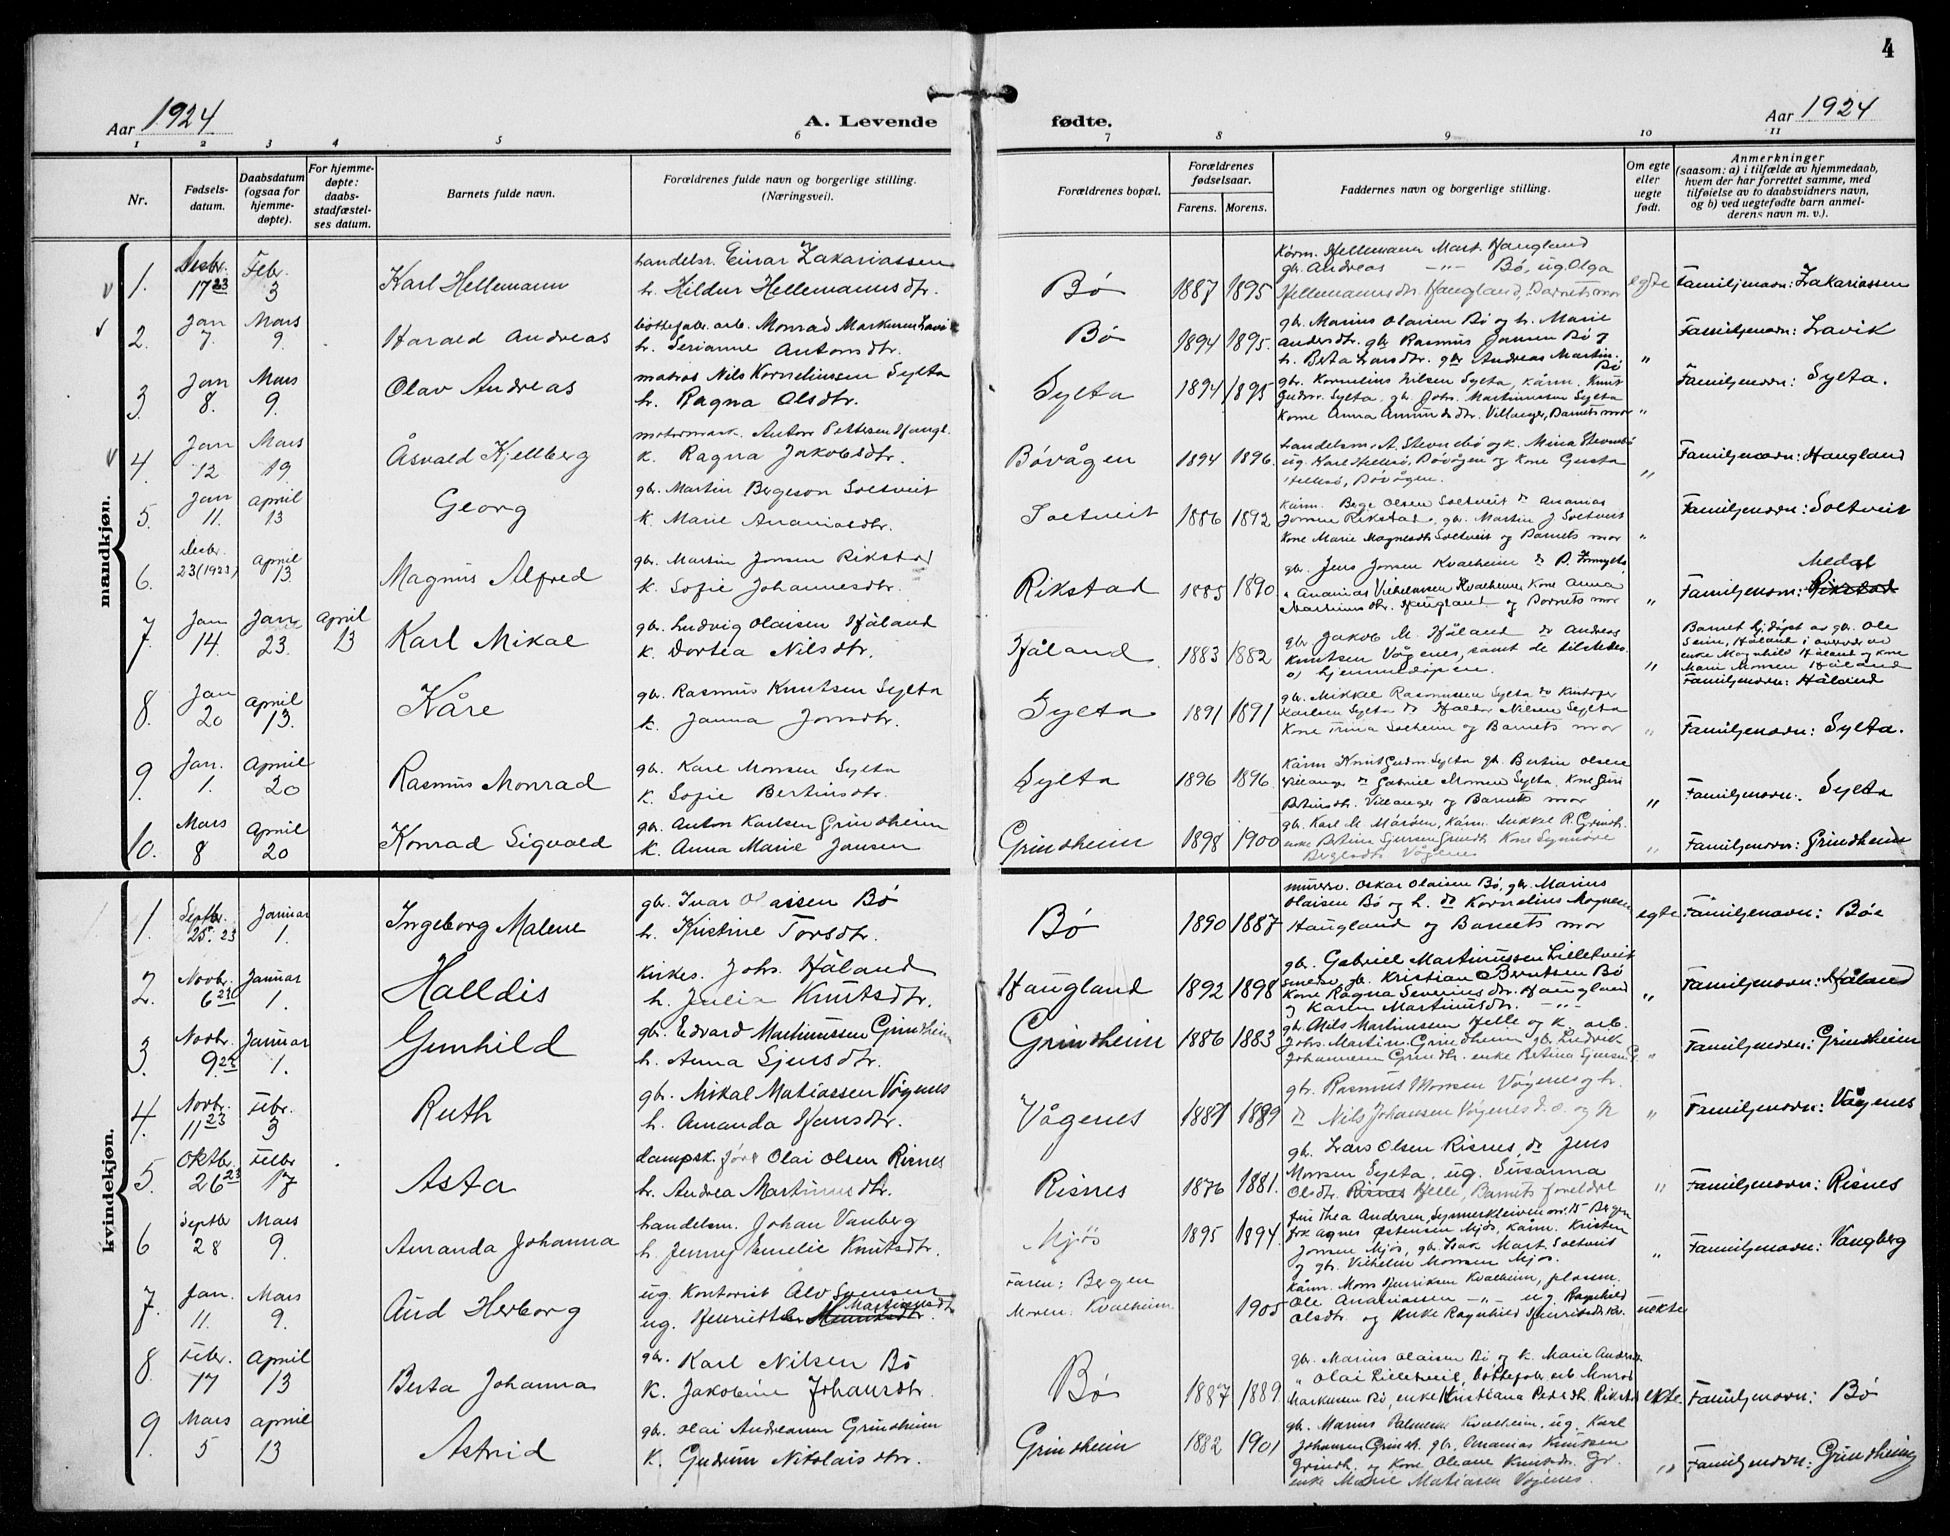 4
Aar 1924
A. Levende
fødte.
Aar 1924
1 2 3 4 5 6 7 8 9 10 11
Nr.
Fødsels-
datum.
Daabsdatum
(ogsaa for
hjemme-
døpte).
For hjemme-
døpte:
daabs-
stadfæstel-
ses datum.
Barnets fulde navn.
Forældrenes fulde navn og borgerlige stilling.
(Næringsvei).
Forældrenes bopæl.
Forældrenes
fødselsaar.
Farens. Morens.
Faddernes navn og borgerlige stilling.
Om egte
eller
uegte
født.
Anmerkninger
(saasom: a) i tilfælde av hjemmedaab,
hvem der har forrettet samme, med
tilføielse av to daabsvidners navn,
og b) ved uegtefødte barn anmel-
derens navn m. v.).
mandkjøn.
1. Desbr. 17 23 Febr. 3 Karl Hellemann
handelsr. Einar Zakariassen
h. Hildur Hellemannsdtr.
Bø 1887 1895
Kårm. Hellemann Mart. Haugland
gbr. Andreas —"— Bø, ug. Olga
Hellemannsdtr. Haugland, Barnets mor
egte Familjenavn: Zakariassen
2. Jan 7. Mars 9. Harald Andreas
Monrad Markussen Lavik
h. Serianne Antonsdtr.
Bø 1894 1895.
gbr. Marius Olaisen Bø og h. Marie
Andersdtr. gbr Rasmus Jansen Bø og
h. Berta Larsdtr. gbr Andreas Martin.
Bø
" Familjenavn: Lavik
3. Jan 8. Mars 9. Olav Andreas
matros Nils Korneliussen Sylta
h. Ragna Olsdtr.
Sylta 1894 1895
gbr. Kornelius Nilsen Sylta, kårm. Knut
Gudm. Sylta. gbr. Johs. Martinussen Sylta
Kone Anna Amundsdtr. Villanger, Barnets mor
" Familjenavn: Sylta.
4. Jan 12 Mars 19. Åsvald Kjellberg
Anton Pettersen Haugl.
k. Ragna Jakobsdtr.
Bøvågen 1894 1896.
handelsm. A. Stevnebø og k. Mina Stevnebø
ug. Karl Hellesø, Bøvågen og Kone Gusta
Hellesø, Bøvågen.
" Familjenavn: Haugland
5. Jan 11. April 13 Georg
gbr. Martin Bergeson Soltveit
k. Marie Ananiasdtr.
Soltveit 1886 1892
Kårm. Berge Olsen Soltveit do Ananias
Jonsen Rikstad, gbr. Martin J Soltveit
Kone Marie Magnesdtr. Soltveit og Barnets mor
" Familjenavn: Soltveit
6. Desbr. 23 (1923) April 13. Magnus Alfred
gbr. Martin Jonsen Rikstad
k. Sofie Johannesdtr.
Rikstad 1885 1890.
gbr. Jens Jonsen Kvalheim
" Ananias Vilhelmsen Kvalheim, Kone Anna
Martinsdtr. Haugland og Barnets mor
" Familjenavn: Rikstad
7. Jan 14. Jan. 23. April 13 Karl Mikal
gbr. Ludvig Olaisen Håland
k. Dortea Nilsdtr.
Håland 1883 1882
gbr Jakob M. Håland do Andreas
Knutsen Vågenes, samt de tilstedev.
v/ hjemmedåpen.
"
Barnet hj.døpt av gbr. Ole
Seim, Håland i overvær av
enke Magnhild Håland og kone
Marie Monsen Håland
Familjenavn: Håland
8. Jan 20 April 13. Kåre
gbr. Rasmus Knutsen Sylta
k. Janna Jonsdtr.
Sylta 1891 1891
gbr. Mikkel Rasmussen Sylta
Karlsen Sylta do Haldor Nilsen Sylta
Kone Trina Solheim og Barnets mor
" Familjenavn: Sylta.
9. Jan. 1. April 20 Rasmus Monrad
gbr. Karl Monsen Sylta
k. Sofie Bertinsdtr.
Sylta 1896 1896.
Kårm Knut Gudm. Sylta gbr. Bertin Olsen
Villanger do Gabriel Monsen Sylta. Kone Guri
Bertinsdtr. Villanger og Barnets mor
" Familjenavn: Sylta
10. Mars 8 April 20 Konrad Sigvald
gbr. Anton Karlsen Grindheim
k. Anna Marie Jansen
Grindheim 1898 1900
gbr. Karl M. Marøen, kårm. Mikkel R. Grindh.
enke Bertina Sjursen Grindh. Kone Synnøve
Vågenes
" Familjenavn: Grindheim
kvindekjøn.
1. Septbr. 25. 23 Januar 1. Ingeborg Malene
gbr. Ivar Olaissen Bø
h. Kristine Torsdtr.
Bø 1890 1887
murersv. Oskar Olaisen Bø, gbr. Marius
Olaisen Bø og h. do Kornelius Mognesen
Haugland og Barnets mor
egte Familjenavn: Bøe
2. Novbr. 6 23 Januar 1. Halldis
kirkes. Johs. Håland
h. Julia Knutsdtr.
Haugland 1892 1898
gbr. Gabriel Martinussen Lilletveit
smed gbr. Kristian Berntsen Bø
Kone Ragna Severinsdtr. Haugland
og Karen Martinusdtr. —"—
" Familjenavn: Håland
3. Novbr. 9. 23 Januar 1. Gunhild
gbr. Edvard Martinussen Grindheim
h. Anna Sjursdtr.
Grindheim 1886 1883
gbr. Nils Martinussen Helle og k. arb.
Johs. Martin. Grindheim gbr. Ludvik
Johannesen Grindh. enke Bertina Sjursen G
" Familjenavn: Grindheim
4. Novbr. 11 23 Febr. 3 Ruth
gbr. Mikal Matiassen Vågenes
h. Amanda Hansdtr.
Vågenes 1887 1889
gbr. Rasmus Monsen Vågenes og h.
do Nils Johansen Vågenes
" Familjenavn: Vågenes
5. Oktbr. 26 23 Febr 17 Asta
dampsk. fører Olai Olsen Risnes
h. Andrea Martinusdtr.
Risnes 1876 1881.
gbr. Lars Olsen Risnes, do Jens
Monsen Sylta, ug. Susanna
Olsdtr. Risnes Helle, Barnets foreldre
" Familjenavn: Risnes
6 Septbr 28 Mars 9. Amanda Johanna
handelsm. Johan Vanberg
h. Jenny Emelie Knutsdtr.
Mjøs 1895 1894.
fru Thea Andersen, Bergen
frk Agnes Østensen Mjøs, kårm. Kristen
Jonsen Mjøs, gbr. Isak Mart. Soltveit
og gbr. Vilhelm Monsen Mjøs.
" Familjenavn: Vangberg
7. Jan. 11. Mars 9. Aud Herborg
ug. Kontorist Alv Svensen
ug. Henriette Martinusdtr.
Faren: Bergen
Moren: Kvalheim
1905
Kårm. Mons Henriksen Kvalheim, plassm.
Ole Ananiassen —"— ug. Ragnhild
Olsdtr. og Enke Ragnhild Henriksdtr. Kv.
uekte
8. Febr. 17 April 13 Berta Johanna
gbr. Karl Nilsen Bø
k. Jakobine Johansdtr.
Bø 1887 1889.
gbr. Marius Olaisen Bø, og k. Marie Andersdtr
" Olai Lilletveit, bøttefabr. arb Monrad
Markussen Bø, enke Kristiana Pedersdtr. Rikstad
ekte. Familjenavn: Bø
9. Mars 5 April 13 Astrid
gbr. Olai Andreassen Grindheim
k. Gudrun Nikolaisdtr.
Grindheim 1882 1901
gbr. Marius Palmesen Kvalheim, ug. Karl
Johansen Grindh. gbr. Ananias Knutsen
Grindh. og Kone Oleane Knutsdtr. Gr.
enke Marie Matiasen Vågenes.
" Familjenavn: Grindheim